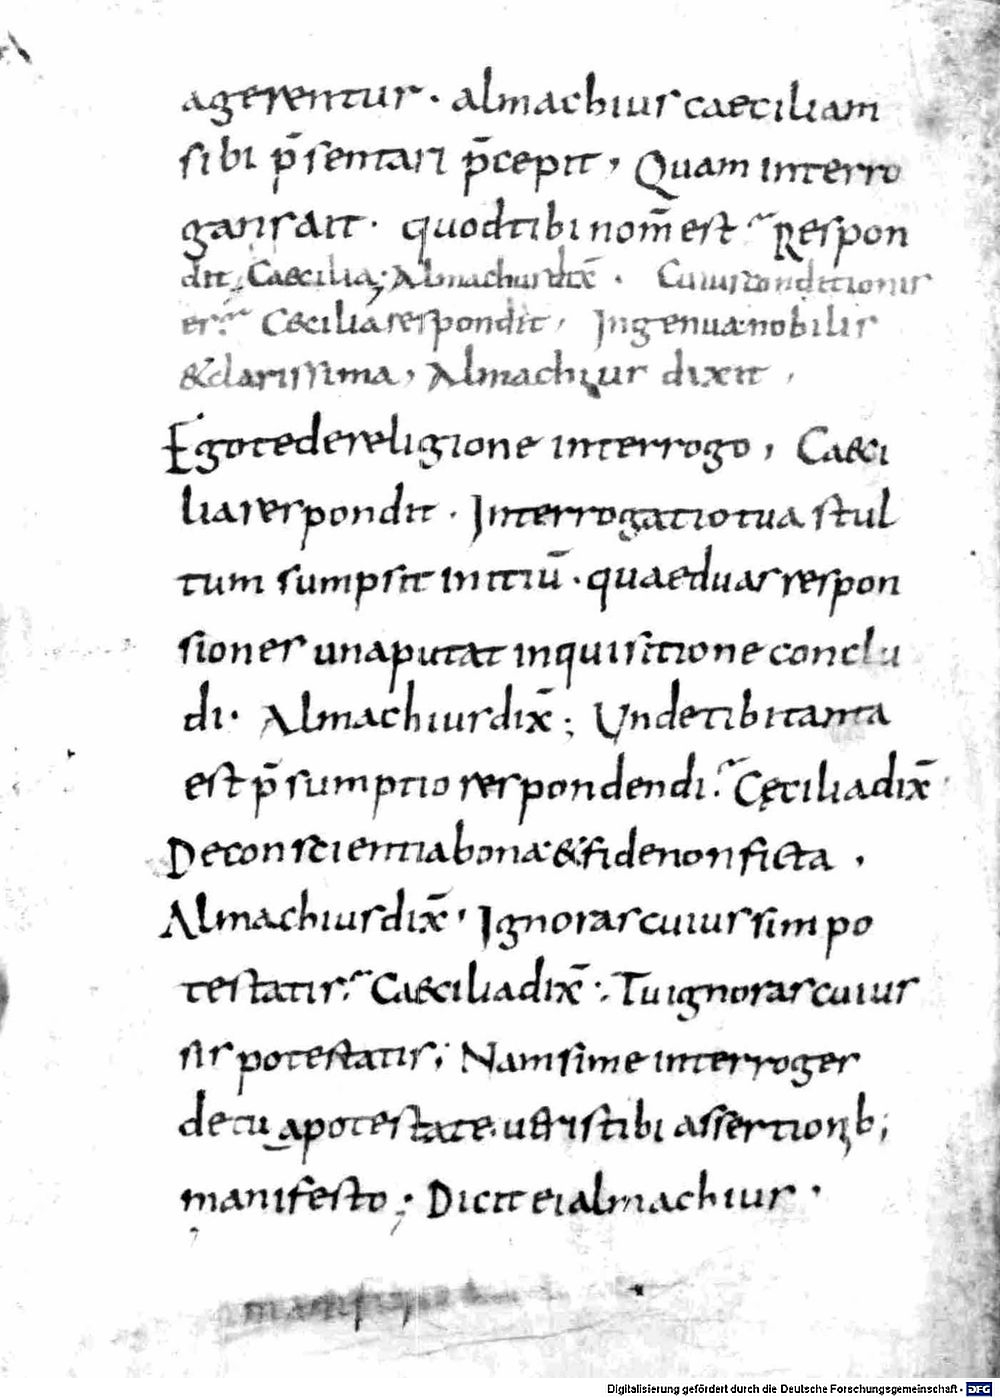 agerentur · almachius caeciliam
sibi p̄sentari p̄cepit, Quam interro
gans ait · quod tibi nom̄ est Respon
dit, Caecilia; Almachius dix̄ · Cuius conditionis
es Cęcilia respondit, Ingenua nobilis
& clarissima, Almachius dixit,
Ego te de religione interrogo, Caeci
lia respondit · Interrogatio tua stul
tum sumpsit initiū · quae duas respon
siones una putat inquisitione conclu
di · Almachius dix̄; Unde tibi tanta
est p̄sumptio respondendi. Cęcilia dix̄
De conscientia bona & fide non ficta,
Almachius dix̄ · Ignoras cuius sim po
testatis. Caecilia dix̄ : Tu ignoras cuius
sis potestatis; Nam si me interroges
de tua potestate. veris tibi assertionib;
manifesto; Dicit ei almachius ·
Digitalisierung gefördert durch die Deutsche Forschungsgemeinschaft - DFG